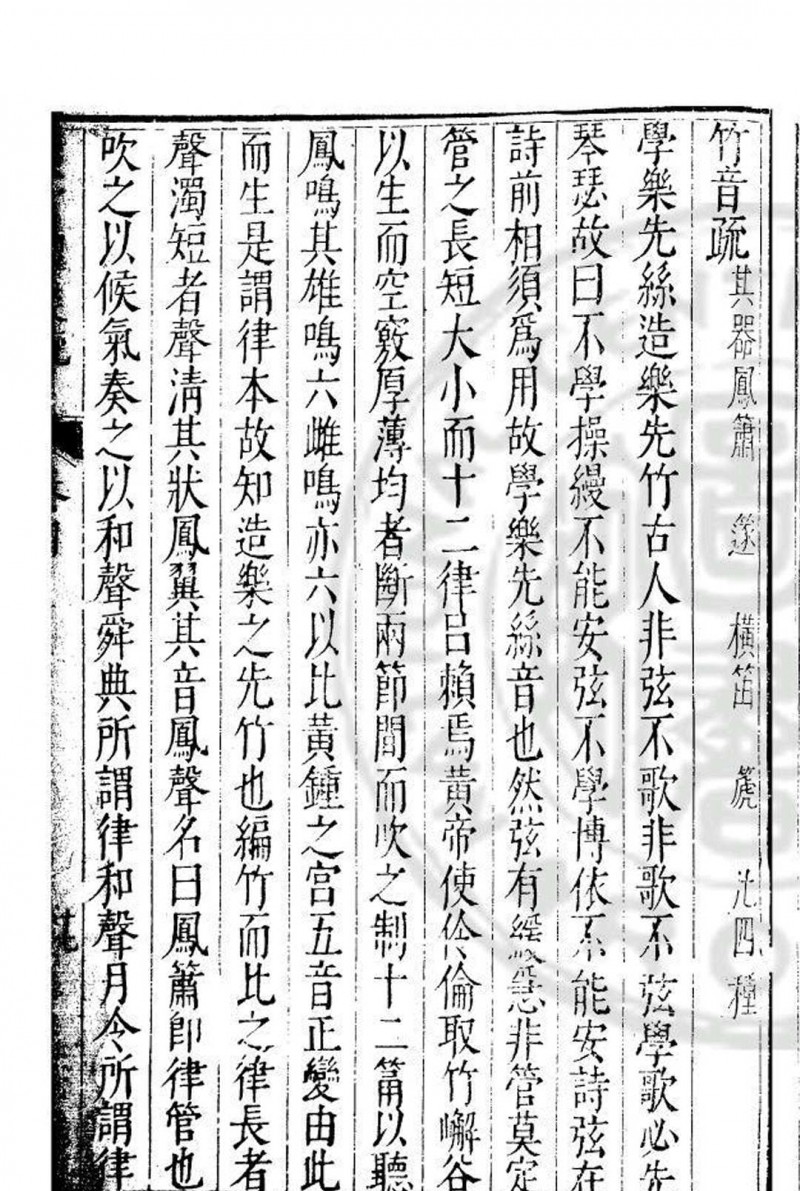 竹音疏其器鳳簫 篴 橫笛 篪 共四種
學樂先絲造樂先竹古人非弦不歌非歌不弦學歌必先
琴瑟故曰不學操縵不能安弦不學博依不能安詩弦在
詩前相須爲用故學樂先絲音也然弦有緩急非管莫定
管之長短大小而十二律呂賴焉黃帝使伶倫取竹嶰谷
以生而空竅厚薄均者斷兩節間而吹之制十二筩以聽
鳳鳴其雄鳴六雌鳴亦六以比黃鍾之宮五音正變由此
而生是謂律本故知造樂之先竹也編竹而比之律長者
聲濁短者聲清其狀鳳翼其音鳳聲名曰鳳簫即律管也
吹之以候氣奏之以和聲舜典所謂律和聲月令所謂律